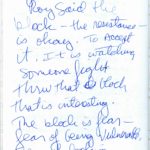 Roy said the
block – the resistance –
is okay. To Accept
it. It is watching
someone fight
thru that block
that is interesting.
The block is fear –
fear of being vulnerable